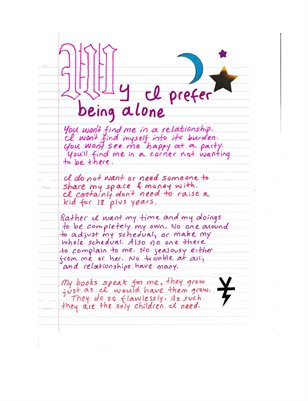 Why I prefer
being alone
You won't find me in a relationship.
I won't find myself into its burden.
You won't see me happy at a party.
You'll find me in a corner not wanting
to be there.
I do not want or need someone to
share my space & money with.
I certainly don't need to raise a
kid for 18 plus years.
Rather I want my time and my doings
to be completely my own. No one around
to adjust my schedual, or make my
whole schedual. Also no one there
to complain to me. No jealousy either
from me or her. No trouble at all,
and relationships have many.
My books speak for me, they grow
just as I would have them grow.
They do so flawlessly. As such
they are the only children I need.